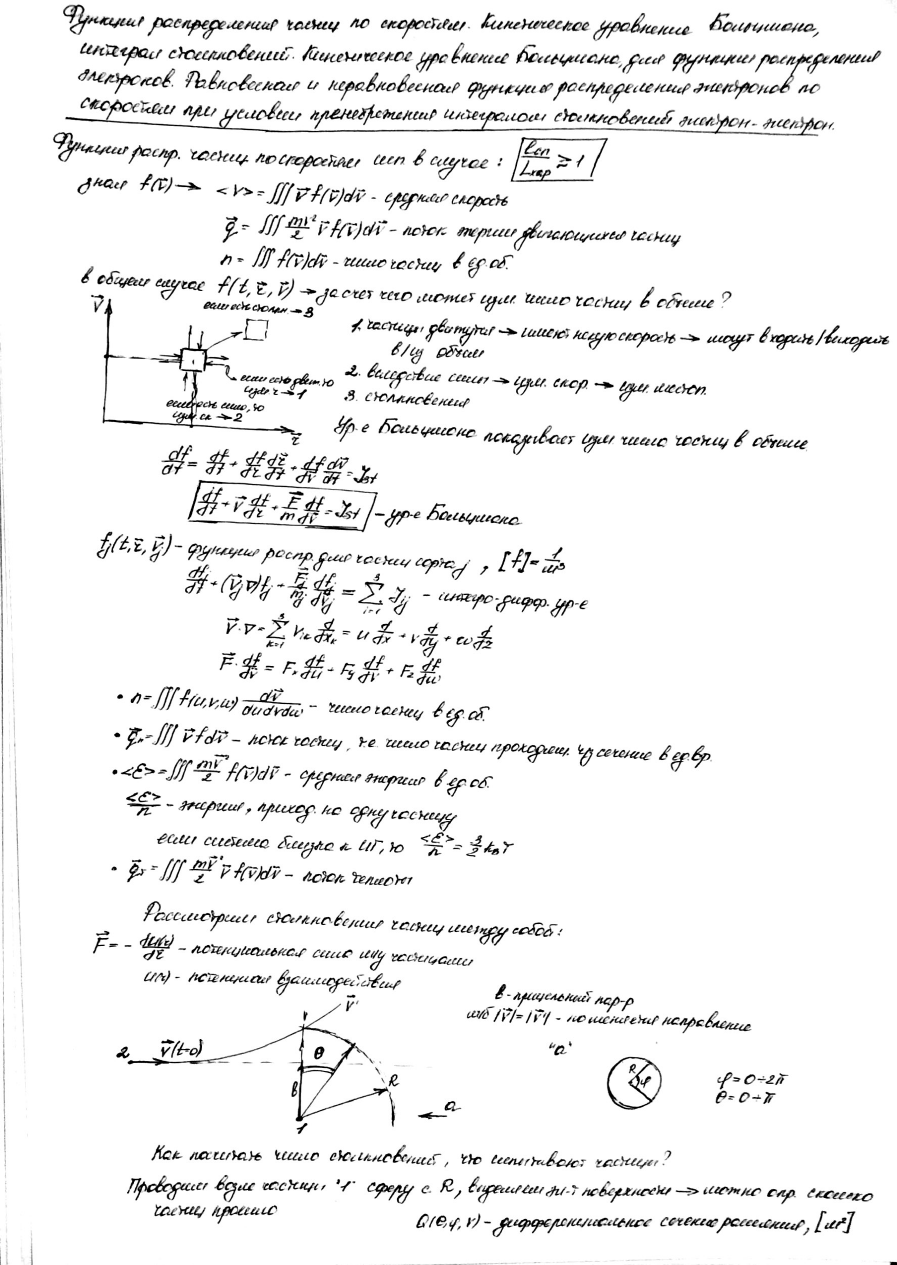 Функция распределения частиц по скоростям. Кинетическое уравнение Больцмана,
интеграл столкновений. Кинетическое уравнение Больцмана, для функции распределения
электронов. Равновесная и неравновесная функция распределения электронов по
скоростям при условии пренебрежения интегралом столкновений электрон-электрон.
Функция распр. частиц по скоростям исп в случае: lсп/Lхар ≳ 1
зная f(v̄) → <v> = ∭ v̄ f(v̄)dv̄ - средняя скорость
q⃗ = ∭ mv²/2 v̄ f(v̄)dv̄ - поток энергии двигающихся частиц
n = ∭ f(v̄)dv̄ - число частиц в ед. об.
в общем случае f(t, r̄, v̄) → за счет чего может изм. число частиц в объеме?
V⃗
если есть столкн → 3
1. частицы движутся → имеют некую скорость → могут входить/выходить
в/из объем
если есть движ, то
изм r → 1
2. вследствие силы → изм. скор. → изм. местоп.
если есть сила, то
изм. ск → 2
3. столкновения
r⃗
Ур-е Больцмана показывает изм число частиц в объеме.
df/dt = df/dt + df/dr̄ dr̄/dt + df/dv̄ dv̄/dt = Jst
df/dt + v̄ df/dr̄ + F⃗/m df/dv̄ = Jst - ур-е Больцмана
fj(t, r̄, v̄j) - функция распр. для частиц сорта j, [f] = 1/м³
dfj/dt + (v̄j ∇)fj + F⃗j/mj dfj/dv̄j = Σ Jij - интегро-дифф. ур-е
v̄·∇ = Σ vk d/dxk = u d/dx + v d/dy + w d/dz
F⃗·df/dv̄ = Fx df/du + Fy df/dv + Fz df/dw
• n = ∭ f(u,v,w) dv̄ / du dv dw - число частиц в ед. об.
• q⃗n = ∭ v̄ f dv̄ - поток частиц, т.е. число частиц проходящ. чз сечение в ед. вр.
• <ε> = ∭ mv̄²/2 f(v̄)dv̄ - средняя энергия в ед. об.
<ε>/n - энергия, приход. на одну частицу
если система близка к ИГ, то <ε>/n = 3/2 kвT
• q⃗т = ∭ mv̄²/2 v̄ f(v̄)dv̄ - поток теплоты
Рассмотрим столкновения частиц между собой:
F⃗ = - du(r)/dr̄ - потенциальная сила м/у частицами
u(r) - потенциал взаимодействия
v̄'
в - прицельный пар-р
чтоб |v̄| = |v̄'| - поменяется направление
2 v̄(t=0)
θ
"a"
R φ
R
φ = 0÷2π
θ = 0÷π
в
1
a
Как посчитать число столкновений, что испытывают частицы?
Проводим возле частицы "1" сферу с R, выделяем эл-т поверхности → можно опр. сколько
частиц прошло
Q(θ, φ, v) - дифференциальное сечение рассеяния, [м²]